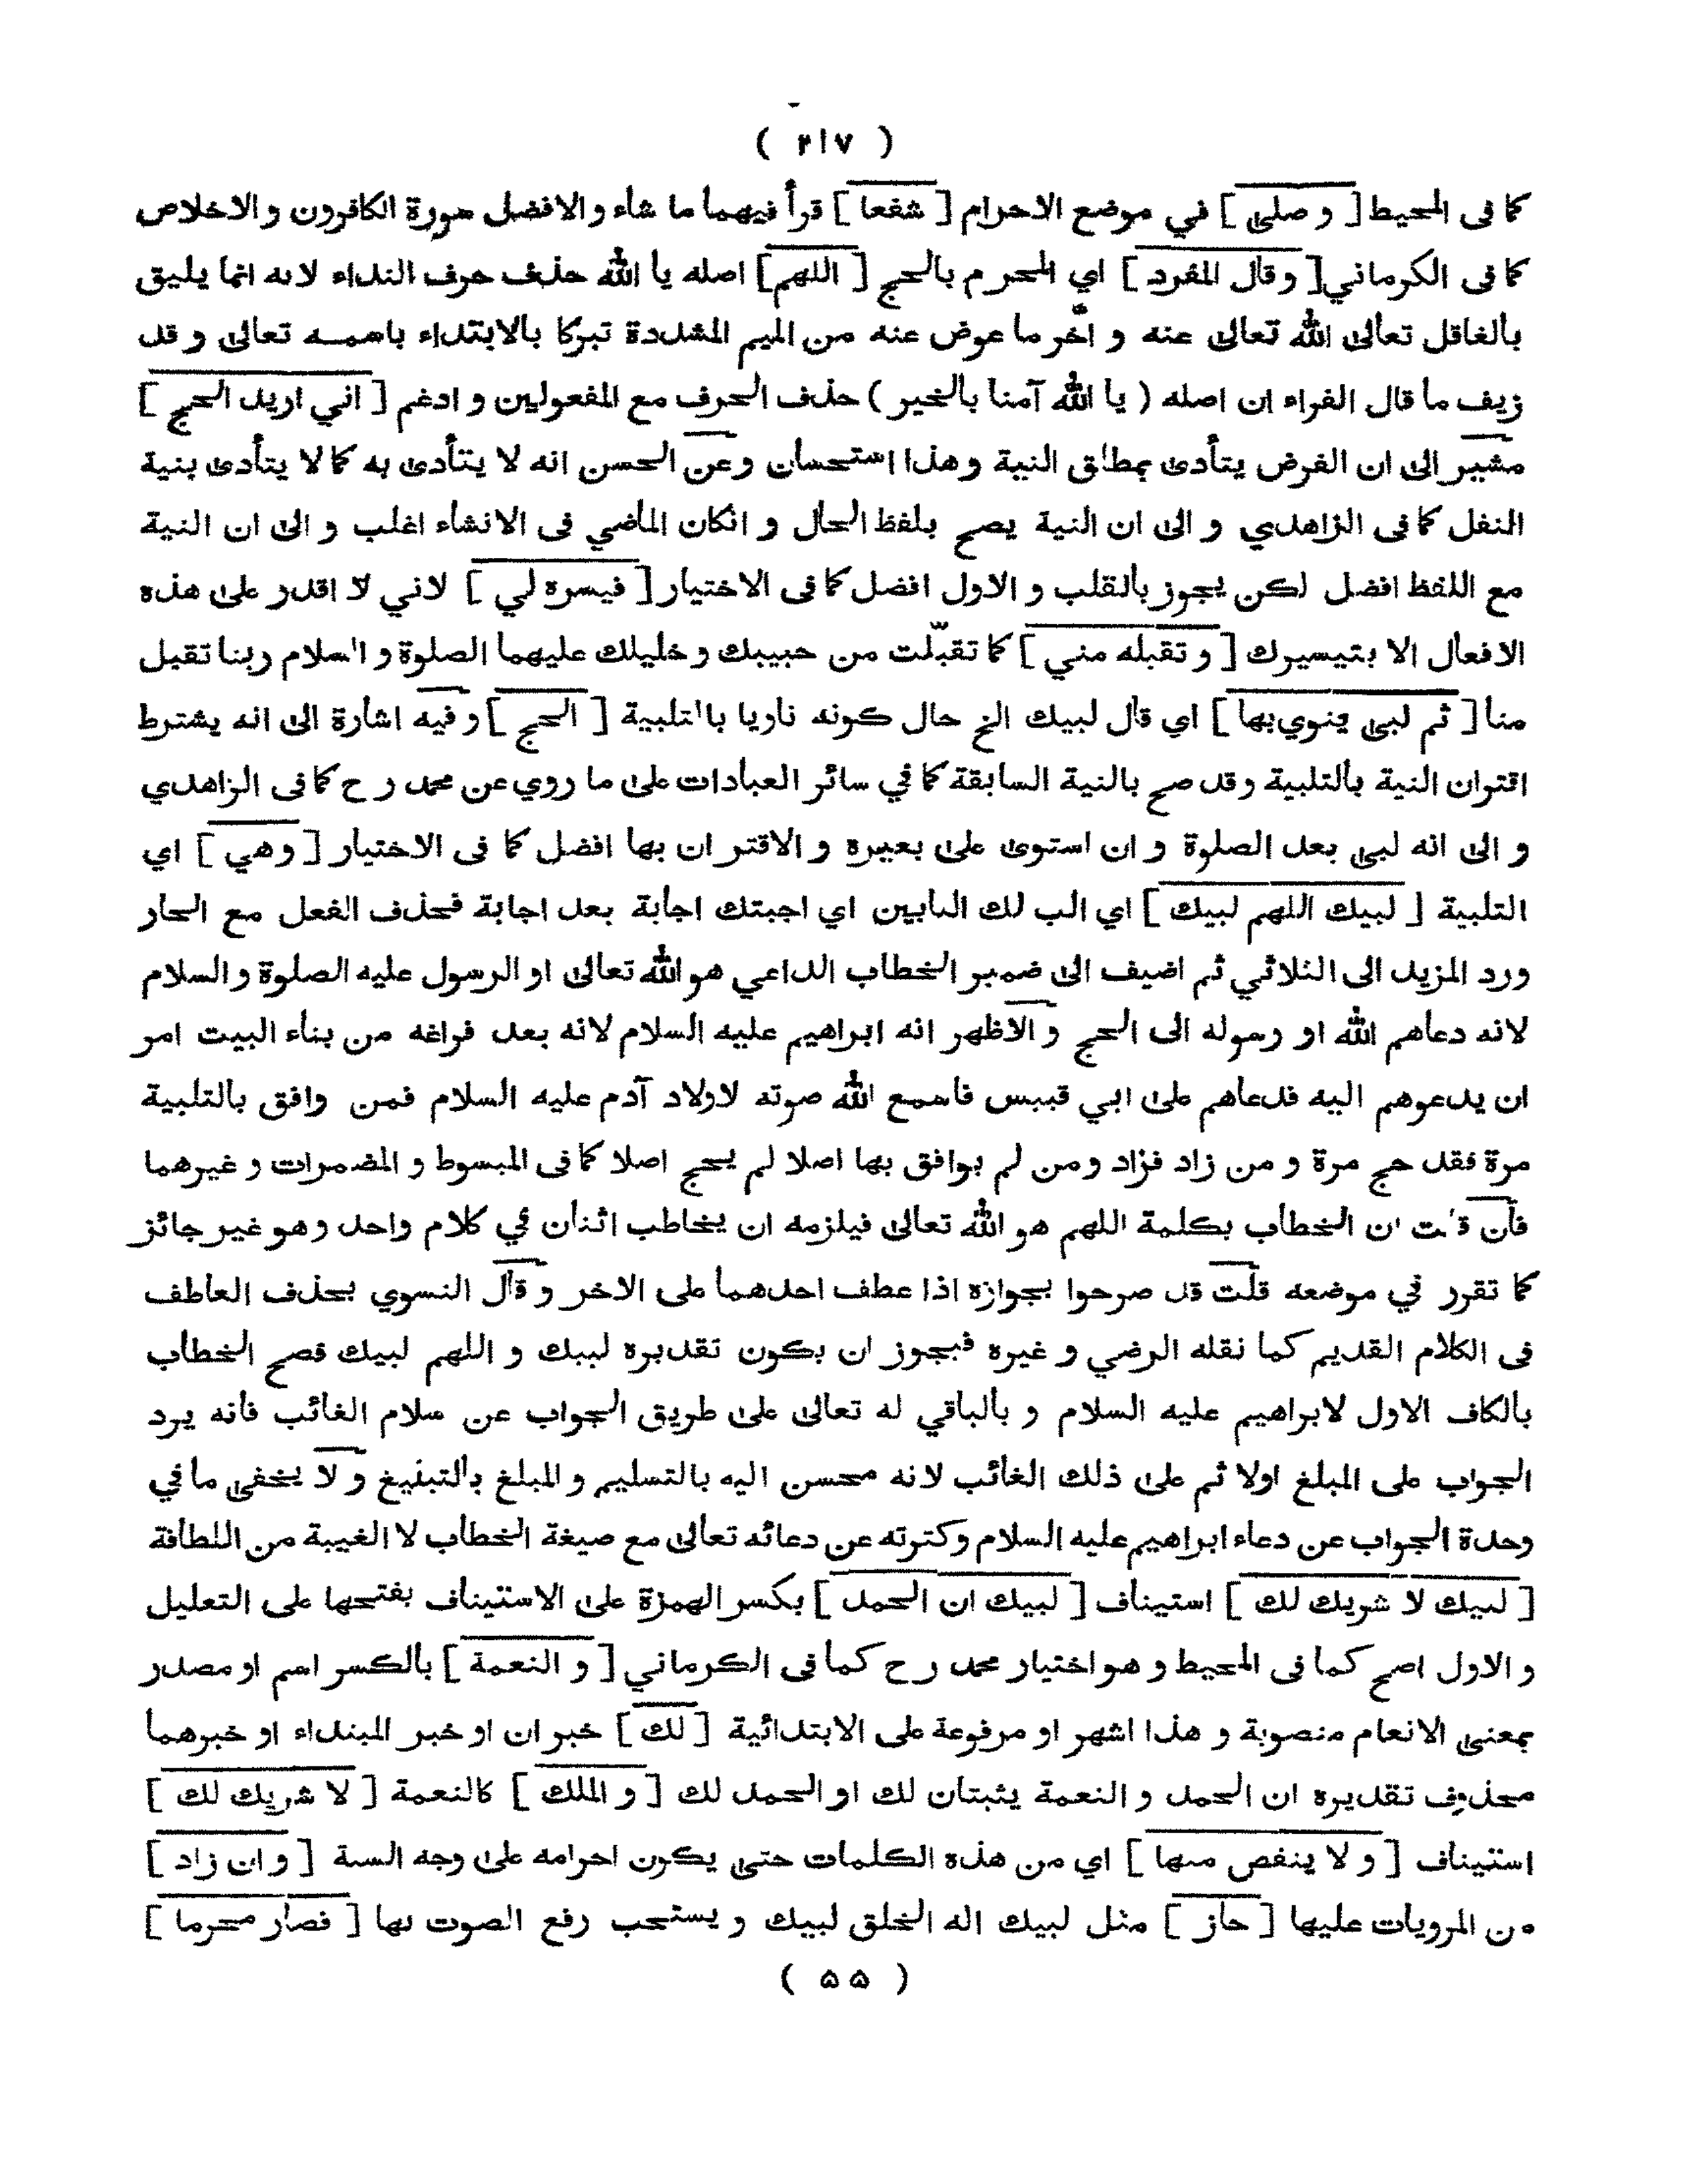 ( ٢١٧ )
كما فى المحيط [ و صلى ] في موضع الاحرام [ شفعا ] قرأ فيهما ما شاء و الافضل سورة الكافرون و الاخلاص
كما فى الكرماني [ وقال المفرد ] اي المحرم بالحج [ اللهم ] اصله يا الله حذف حرف النداء لانه انما يليق
بالغافل تعالى الله تعالى عنه و اخّر ما عوض عنه من الميم المشددة تبركا بالابتداء باسمه تعالى و قد
زيف ما قال الفراء ان اصله ( يا الله آمنا بالخير ) حذف الحرف مع المفعولين و ادغم [ اني اريد الحج ]
مشير الى ان الفرض يتأدى بمطلق النية وهذا استحسان وعن الحسن انه لا يتأدى به كما لا يتأدى بنية
النفل كما فى الزاهدي و الى ان النية يصح بلفظ الحال و انكان الماضي فى الانشاء اغلب و الى ان النية
مع اللفظ افضل لكن يجوز بالقلب و الاول افضل كما فى الاختيار [ فيسره لي ] لاني لا اقدر على هذه
الافعال الا بتيسيرك [ و تقبله مني ] كما تقبّلت من حبيبك و خليلك عليهما الصلوة و السلام ربنا تقبل
منا [ ثم لبى ينوي بها ] اي قال لبيك الخ حال كونه ناويا بالتلبية [ الحج ] و فيه اشارة الى انه يشترط
اقتران النية بالتلبية وقد صح بالنية السابقة كما في سائر العبادات على ما روي عن محمد ر ح كما فى الزاهدي
و الى انه لبى بعد الصلوة و ان استوى على بعيره و الاقتران بها افضل كما فى الاختيار [ وهي ] اي
التلبية [ لبيك اللهم لبيك ] اي الب لك البابين اي اجبتك اجابة بعد اجابة فحذف الفعل مع الجار
ورد المزيد الى الثلاثي ثم اضيف الى ضمير الخطاب الداعي هو الله تعالى او الرسول عليه الصلوة و السلام
لانه دعاهم الله او رسوله الى الحج و الاظهر انه ابراهيم عليه السلام لانه بعد فراغه من بناء البيت امر
ان يدعوهم اليه فدعاهم على ابي قبيس فاسمع الله صوته لاولاد آدم عليه السلام فمن وافق بالتلبية
مرة فقد حج مرة و من زاد فزاد و من لم يوافق بها اصلا لم يحج اصلا كما فى المبسوط و المضمرات و غيرهما
فان قلت ان الخطاب بكلمة اللهم هو الله تعالى فيلزمه ان يخاطب اثنان في كلام واحد وهو غير جائز
كما تقرر في موضعه قلت قد صرحوا بجوازه اذا عطف احدهما على الاخر و قال النسوي بحذف العاطف
فى الكلام القديم كما نقله الرضي و غيره فيجوز ان يكون تقديره لبيك و اللهم لبيك فصح الخطاب
بالكاف الاول لابراهيم عليه السلام و بالباقي له تعالى على طريق الجواب عن سلام الغائب فانه يرد
الجواب على المبلغ اولا ثم على ذلك الغائب لانه محسن اليه بالتسليم و المبلغ بالتبليغ و لا يخفى ما في
وحدة الجواب عن دعاء ابراهيم عليه السلام وكثرته عن دعائه تعالى مع صيغة الخطاب لا الغيبة من اللطافة
[ لبيك لا شريك لك ] استيناف [ لبيك ان الحمد ] بكسر الهمزة على الاستيناف بفتحها على التعليل
و الاول اصح كما فى المحيط و هو اختيار محمد ر ح كما فى الكرماني [ و النعمة ] بالكسر اسم او مصدر
بمعنى الانعام منصوبة و هذا اشهر او مرفوعة على الابتدائية [ لك ] خبر ان او خبر المبتداء او خبرهما
محذوف تقديره ان الحمد و النعمة يثبتان لك او الحمد لك [ و الملك ] كالنعمة [ لا شريك لك ]
استيناف [ و لا ينقص منها ] اي من هذه الكلمات حتى يكون احرامه على وجه السنة [ و ان زاد ]
من المرويات عليها [ جاز ] مثل لبيك اله الخلق لبيك و يستحب رفع الصوت بها [ فصار محرما ]
( ٥٥ )